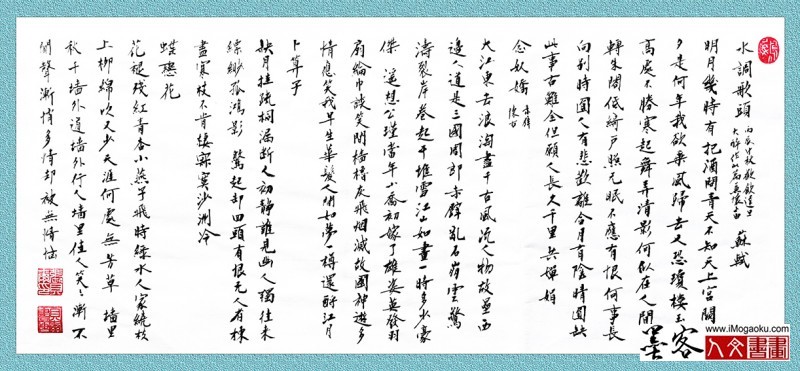 水調歌頭 丙辰中秋歡飲達旦
大醉作此篇兼懷子由 蘇軾
明月幾時有把酒問青天不知天上宮闕
夕是何年我欲乘風歸去又恐瓊樓玉
高處不勝寒起舞弄清影何似在人間
轉朱閣低綺戶照無眠不應有恨何事長
向別時圓人有悲歡離合月有陰晴圓缺
此事古難全但願人長久千里共嬋娟
念奴嬌 赤壁
懷古
大江東去浪淘盡千古風流人物故壘西
邊人道是三國周郎赤壁亂石崩雲驚
濤裂岸卷起千堆雪江山如畫一時多少豪
傑 遙想公瑾當年小喬初嫁了雄姿英發羽
扇綸巾談笑間檣櫓灰飛烟滅故國神遊多
情應笑我早生華髮人間如夢一樽還酹江月
卜算子
缺月挂疏桐漏斷人初靜誰見幽人獨往來
縹緲孤鴻影 驚起却回頭有恨無人省揀
盡寒枝不肯棲寂寞沙洲冷
蝶戀花
花褪殘紅青杏小燕子飛時綠水人家繞枝
上柳綿吹又少天涯何處無芳草 墻里
秋千墻外道墻外行人墻里佳人笑笑漸不
聞聲漸悄多情却被無情惱
墨客
www.iMogaoku.com
人文書畫